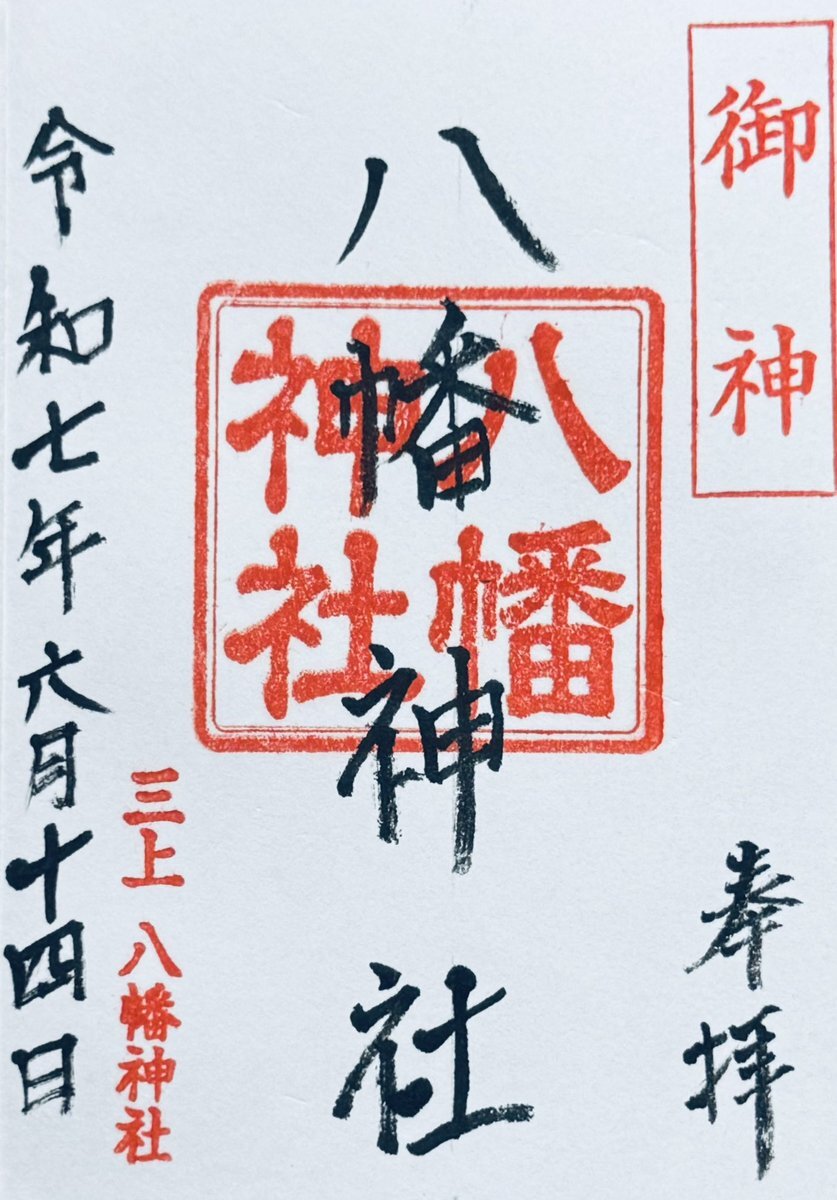 御神
奉拝
八幡神社
八幡
神社
三上 八幡神社
令和七年六月十四日